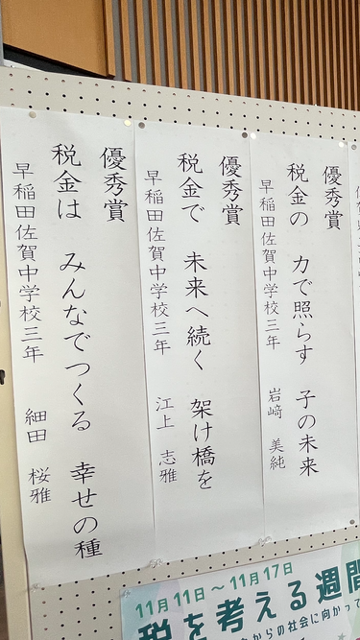 優秀賞
税金の 力で照らす 子の未来
早稲田佐賀中学校三年 岩﨑 美純
優秀賞
税金で 未来へ続く 架け橋を
早稲田佐賀中学校三年 江上 志雅
優秀賞
税金は みんなでつくる 幸せの種
早稲田佐賀中学校三年 細田 桜雅
11月11日～11月17日
税を考える週間
からの社会に向かって